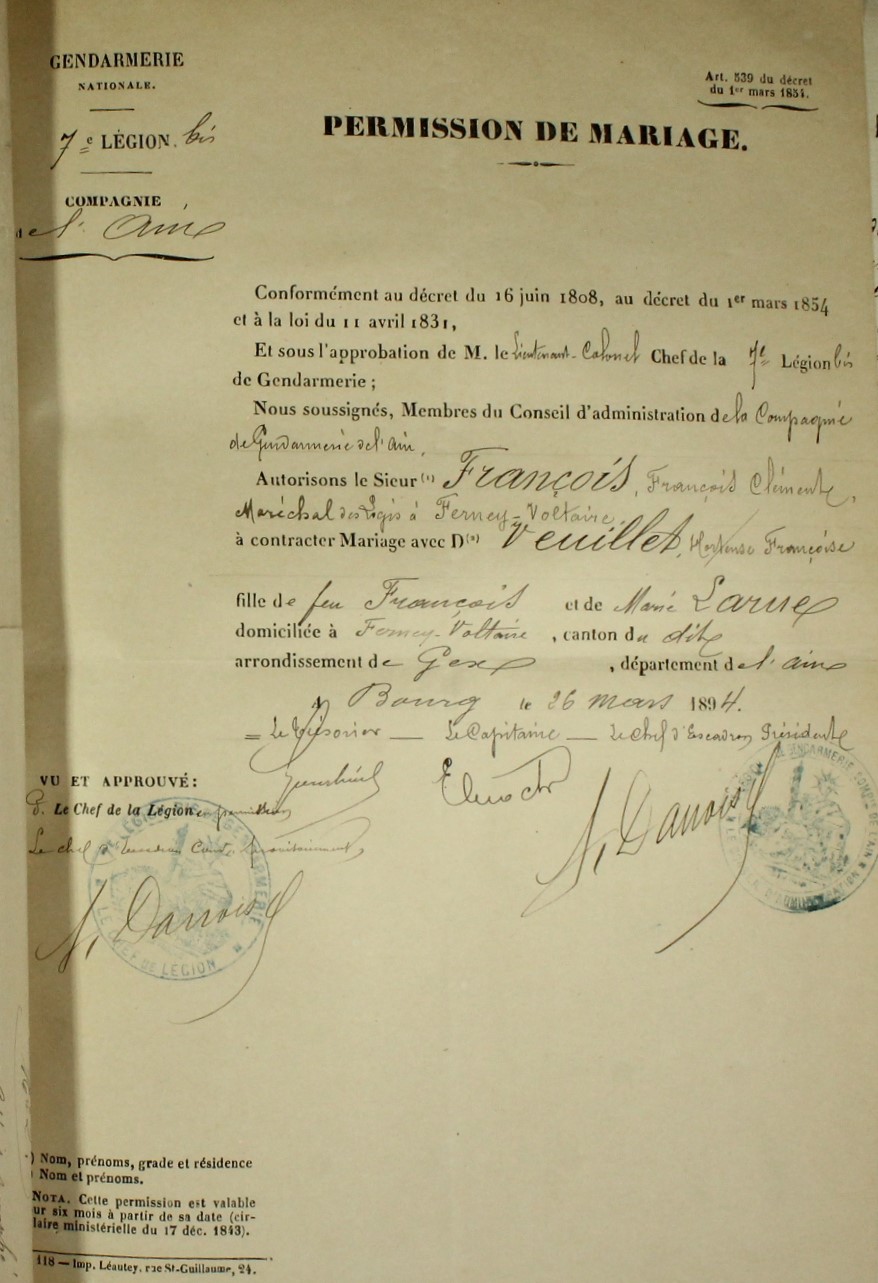 GENDARMERIE
NATIONALE.
7e LÉGION. bis
COMPAGNIE
de l'Ain
Art. 539 du décret
du 1er mars 1854.
PERMISSION DE MARIAGE.
Conformément au décret du 16 juin 1808, au décret du 1er mars 1854
et à la loi du 11 avril 1831,
Et sous l'approbation de M. le Lieutenant-Colonel Chef de la 7e Légion bis
de Gendarmerie ;
Nous soussignés, Membres du Conseil d'administration de la Compagnie
de Gendarmerie de l'Ain,
Autorisons le Sieur (1) François, François Clément,
Maréchal des Logis à Ferney-Voltaire,
à contracter Mariage avec D(2) Veuillet, Hortense Françoise
fille de feu François et de Marie
domiciliée à Ferney-Voltaire, canton du dit
arrondissement de Gex, département de l'Ain
A Bourg le 26 mars 1894.
Le Trésorier — Le Capitaine — Le Chef d'Escadron Président
VU ET APPROUVÉ :
P. Le Chef de la Légion en permission
Le chef d'Escadron
N. Danois
N. Danois
CHEF DE LÉGION
) Nom, prénoms, grade et résidence
Nom et prénoms.
NOTA. Cette permission est valable
ur six mois à partir de sa date (cir-
laire ministérielle du 17 déc. 1843).
118 — Imp. Léautey, rue St-Guillaume, 24.